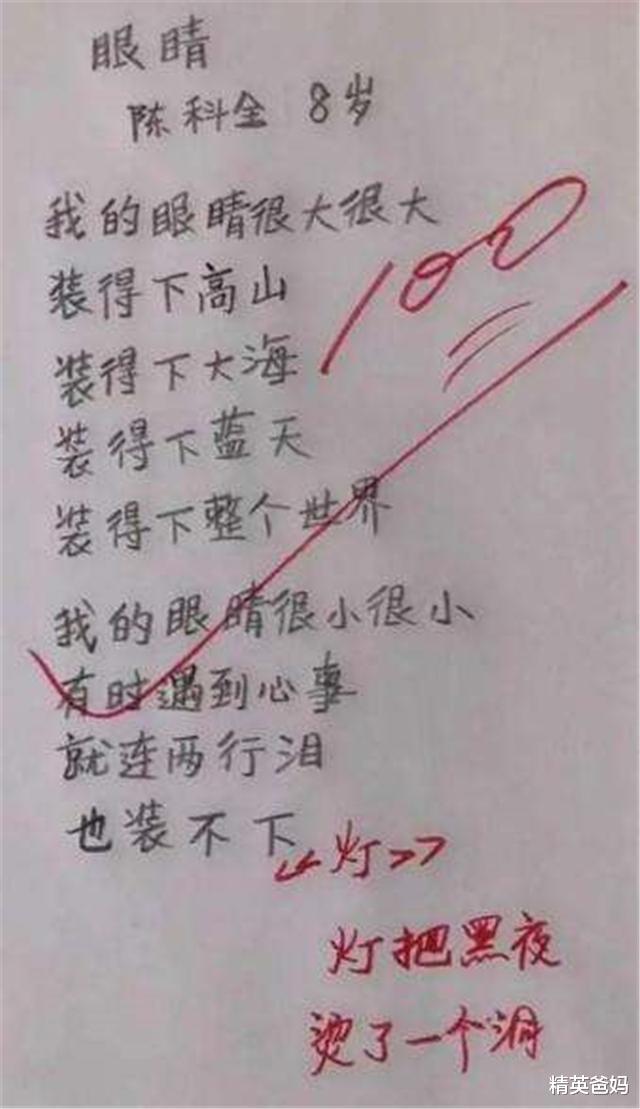 眼睛
陈科全 8岁
我的眼睛很大很大
装得下高山
装得下大海
装得下蓝天
装得下整个世界
100
我的眼睛很小很小
有时遇到心事
就连两行泪
也装不下
《灯》
灯把黑夜
烫了一个洞
精英爸妈